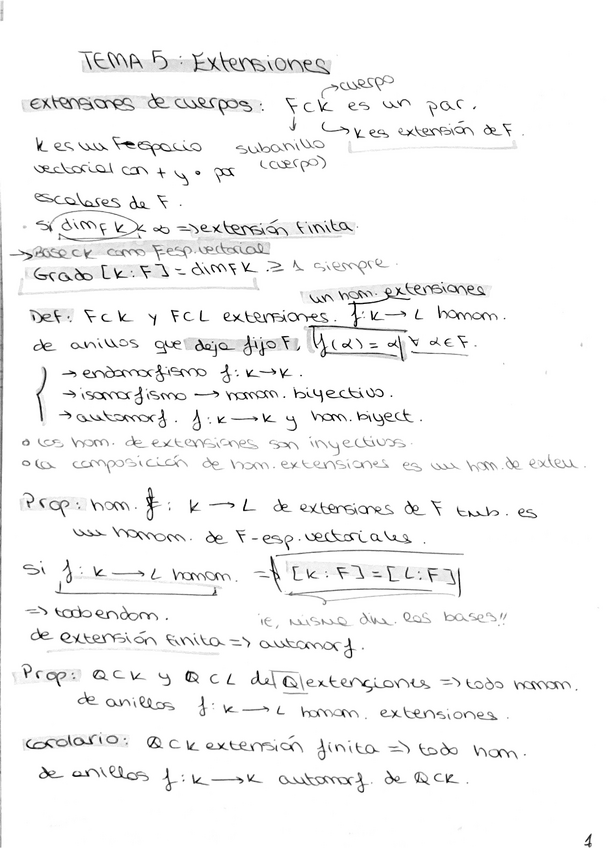 TEMA 5: Extensiones
extensiones de cuerpos: F⊂K es un par.
→cuerpo
↳ K es extensión de F.
subanillo
(cuerpo)
K es un F espacio
vectorial con + y · por
escalares de F.
· Si dim_F K < ∞ ⇒ extensión finita.
→ Base ⊂ K como F esp. vectorial
Grado [K:F] = dim_F K. ≥ 1 siempre.
un hom. extensiones
Def: F⊂K y F⊂L extensiones. f: K → L homom.
de anillos que deja fijo F, f(α) = α ∀ α∈F.
→ endomorfismo f: K→K.
→ isomorfismo → homom. biyectivo.
→ automorf. f: K→K y hom. biyect.
o Los hom. de extensiones son inyectivos.
o La composición de hom. extensiones es un hom. de exten.
Prop: hom. f: K → L de extensiones de F tmb. es
un homom. de F-esp. vectoriales.
Si f: K → L homom. ⇒ [K:F] = [L:F]
⇒ todo endom. ie, misma dim. las bases!!
de extensión finita ⇒ automorf.
Prop: Q⊂K y Q⊂L de Q extensiones ⇒ todo homom.
de anillos f: K → L homom. extensiones.
Corolario: Q⊂K extensión finita ⇒ todo hom.
de anillos f: K → K automorf. de Q⊂K.
1